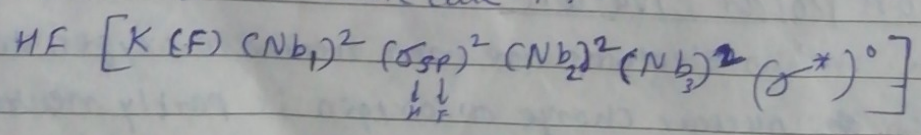 HF [K(F) (Nb₁)² (σsp)² (Nb₂)² (Nb₃)² (σ*)⁰]
↓ ↓
H F